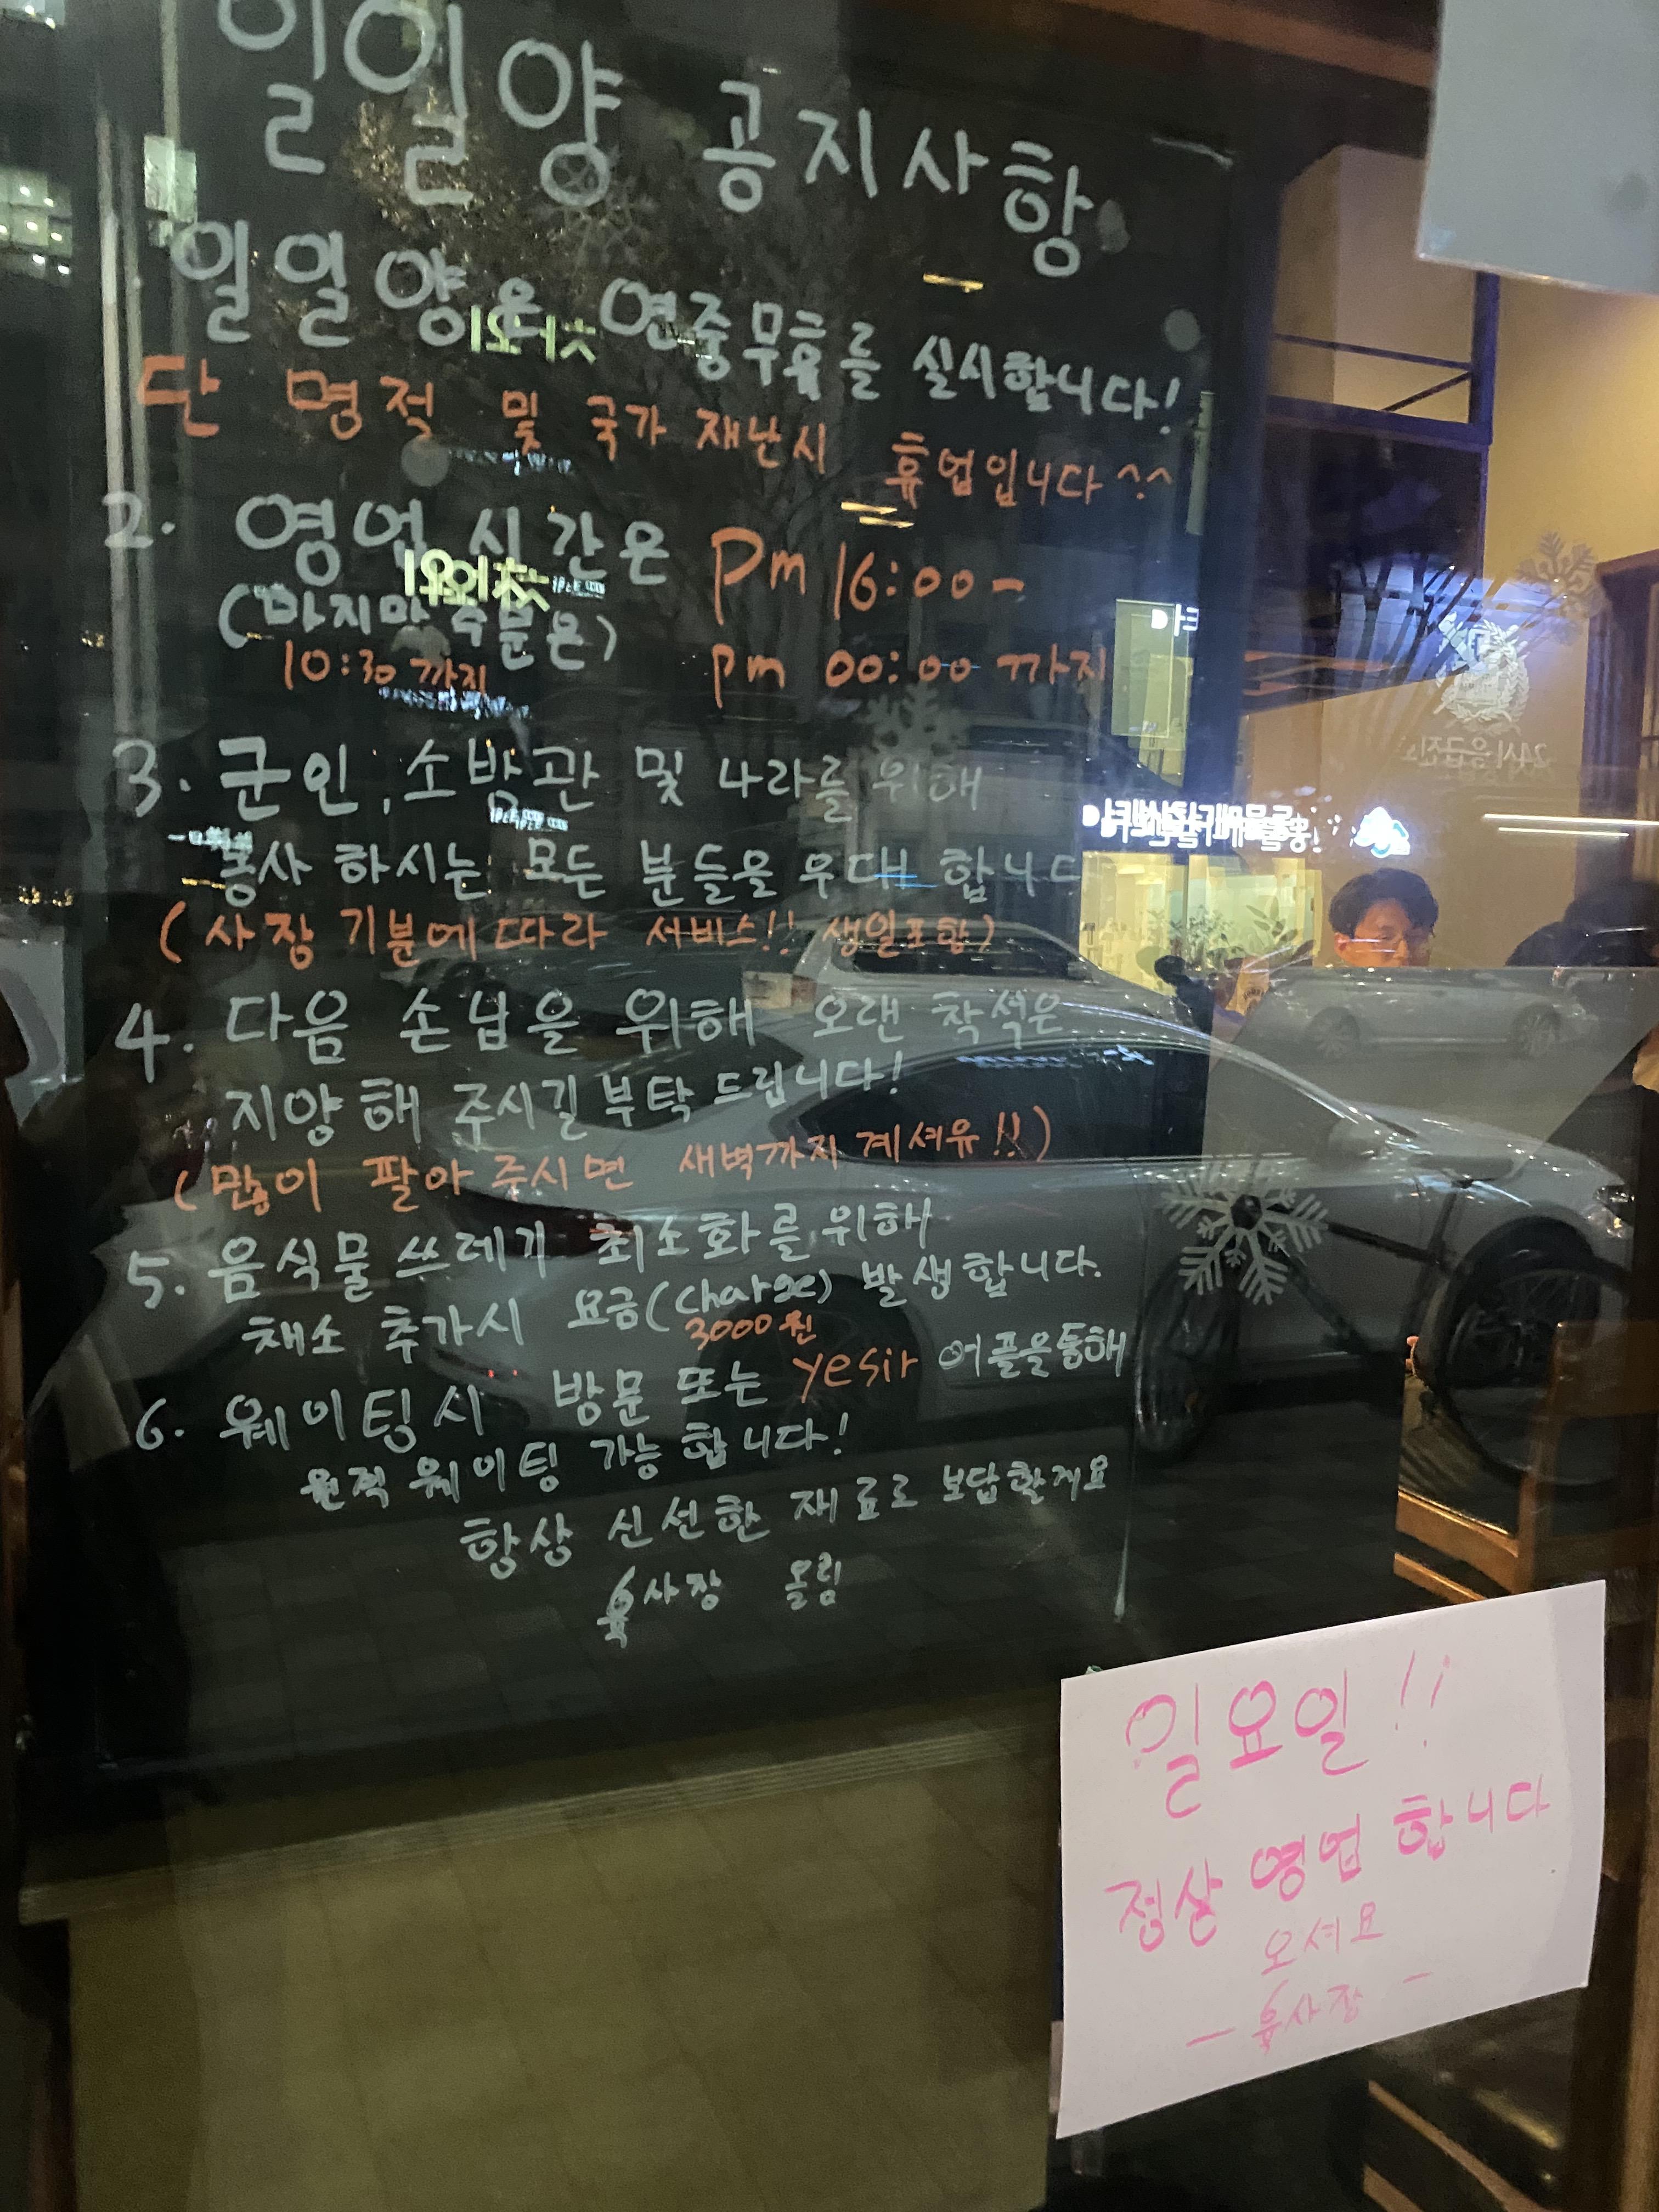 일일양 공지사항
일일양은 연중무휴를 실시합니다!
단 명절 및 국가 재난시 휴업입니다^^
2. 영업시간은 pm 16:00 -
(마지막 주문은) pm 00:00 까지
10:30 까지
3. 군인, 소방관 및 나라를 위해
봉사 하시는 모든 분들을 우대 합니다
(사장 기분에 따라 서비스!! 생일포함)
4. 다음 손님을 위해 오랜 착석은
지양해 주시길 부탁드립니다!
(많이 팔아 주시면 새벽까지 계셔유!!)
5. 음식물 쓰레기 최소화를 위해
채소 추가시 요금(charge) 발생합니다.
3000원
6. 웨이팅시 방문 또는 yesir 어플을 통해
원격 웨이팅 가능합니다!
항상 신선한 재료로 보답할게요
육사장 올림
일요일!!
정상 영업 합니다
오셔요
- 육사장 -